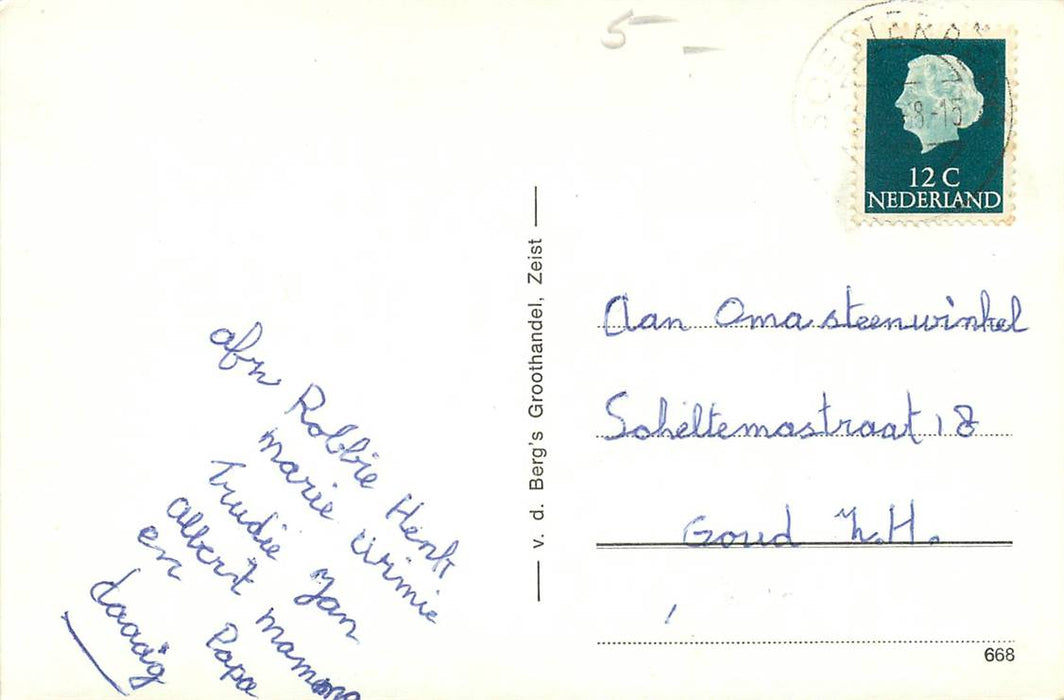 5
SOESTERB
8-15
12 C
NEDERLAND
afn Robbie Henk
marie Wimie
Trudie Jan
Albert mamma
en Papa
daaag
v. d. Berg's Groothandel, Zeist
Aan Oma steenwinkel
Scheltemastraat 18
Goud Z.H.
668